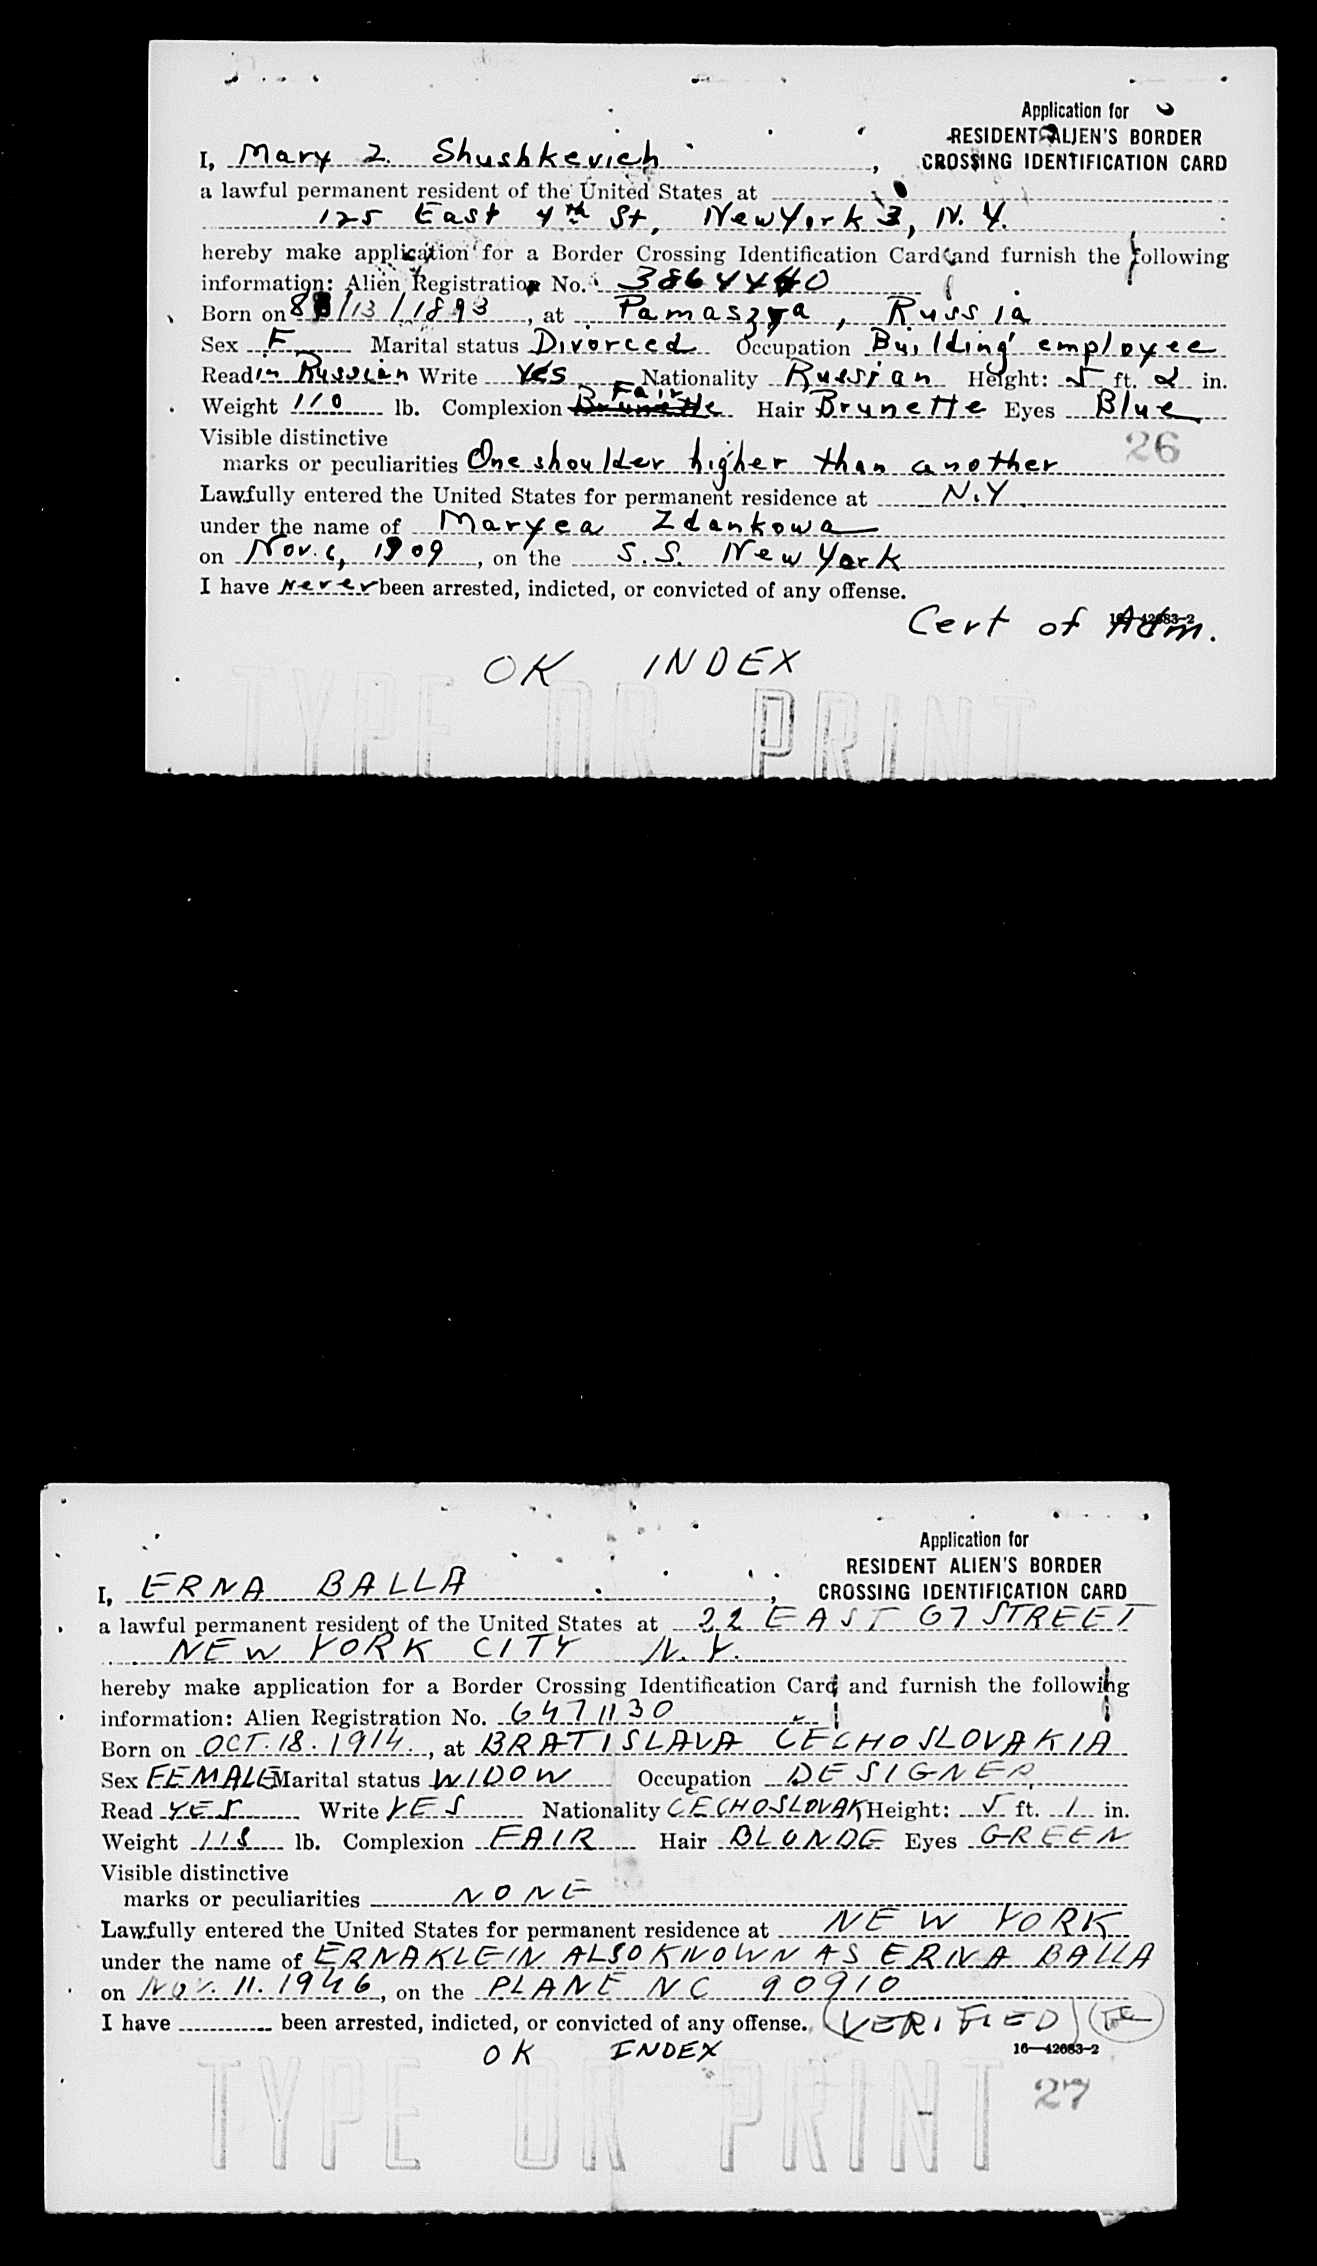 Application for
RESIDENT ALIEN'S BORDER
CROSSING IDENTIFICATION CARD
I, Mary Z. Shushkevich,
a lawful permanent resident of the United States at
125 East 4th St, New York 3, N. Y.
hereby make application for a Border Crossing Identification Card and furnish the following
information: Alien Registration No. 3864440
Born on 8/13/1893, at Pamaszya, Russia
Sex F Marital status Divorced Occupation Building employee
Read in Russian Write Yes Nationality Russian Height: 5 ft. 2 in.
Weight 110 lb. Complexion Brunette Fair Hair Brunette Eyes Blue
Visible distinctive
26
marks or peculiarities One shoulder higher than another
Lawfully entered the United States for permanent residence at N.Y.
under the name of Maryea Zdankowa
on Nov. 6, 1909, on the S.S. New York
I have never been arrested, indicted, or convicted of any offense.
16—42683-2
Cert of Adm.
OK INDEX
TYPE OR PRINT
Application for
RESIDENT ALIEN'S BORDER
CROSSING IDENTIFICATION CARD
I, ERNA BALLA,
a lawful permanent resident of the United States at 22 EAST 67 STREET
NEW YORK CITY N.Y.
hereby make application for a Border Crossing Identification Card and furnish the following
information: Alien Registration No. 6471130
Born on OCT. 18. 1914., at BRATISLAVA CECHOSLOVAKIA
Sex FEMALE Marital status WIDOW Occupation DESIGNER
Read YES Write YES Nationality CECHOSLOVAK Height: 5 ft. 1 in.
Weight 118 lb. Complexion FAIR Hair BLONDE Eyes GREEN
Visible distinctive
marks or peculiarities NONE
Lawfully entered the United States for permanent residence at NEW YORK
under the name of ERNA KLEIN ALSO KNOWN AS ERNA BALLA
on NOV. 11. 1946, on the PLANE NC 90910
I have been arrested, indicted, or convicted of any offense. VERIFIED
OK INDEX 16—42683-2
27
TYPE OR PRINT